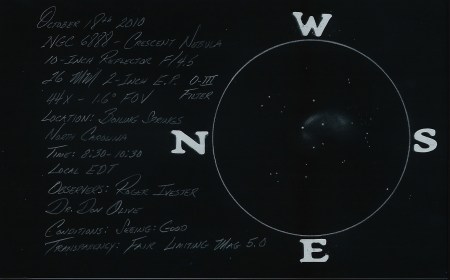 October 18th 2010
NGC 6888 - Crescent Nebula
10-Inch Reflector F/4.5
26 mm 2-Inch E.P. O-III
Filter
44x - 1.6° FOV
Location: Boiling Springs
North Carolina
Time: 8:30-10:30
Local EDT
Observers: Roger Ivester
Dr. Don Olive
Conditions: Seeing: Good
Transparency: Fair Limiting Mag 5.0
W
N
S
E